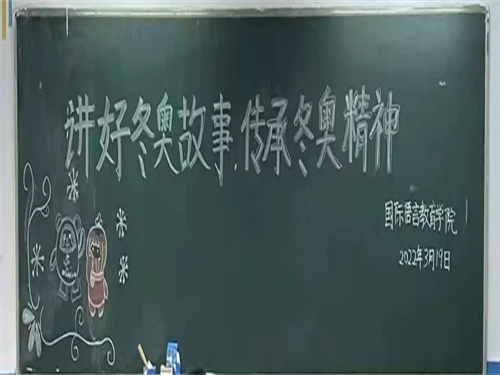 讲好冬奥故事,传承冬奥精神
国际语言教育学院
2022年3月19日